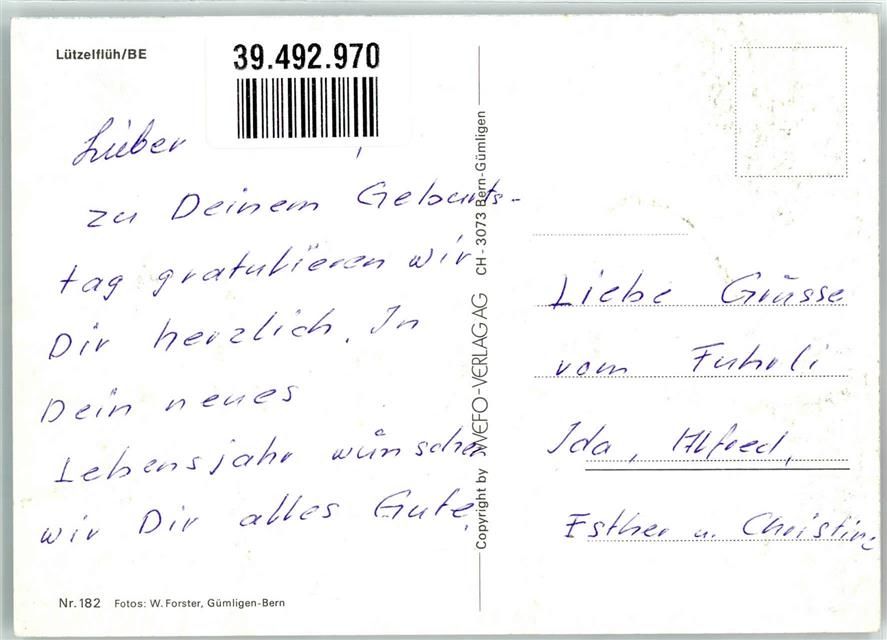 Lützelflüh/BE
39.492.970
Lieber ,
zu Deinem Geburts-
tag gratulieren wir
Dir herzlich. In
Dein neues
Lebensjahr wünschen
wir Dir alles Gute.
Nr. 182 Fotos: W. Forster, Gümligen-Bern
Copyright by WEFO-VERLAG AG CH-3073 Bern-Gümligen
Liebe Grüsse
vom Fuhrli
Ida, Alfred,
Esther u. Christine